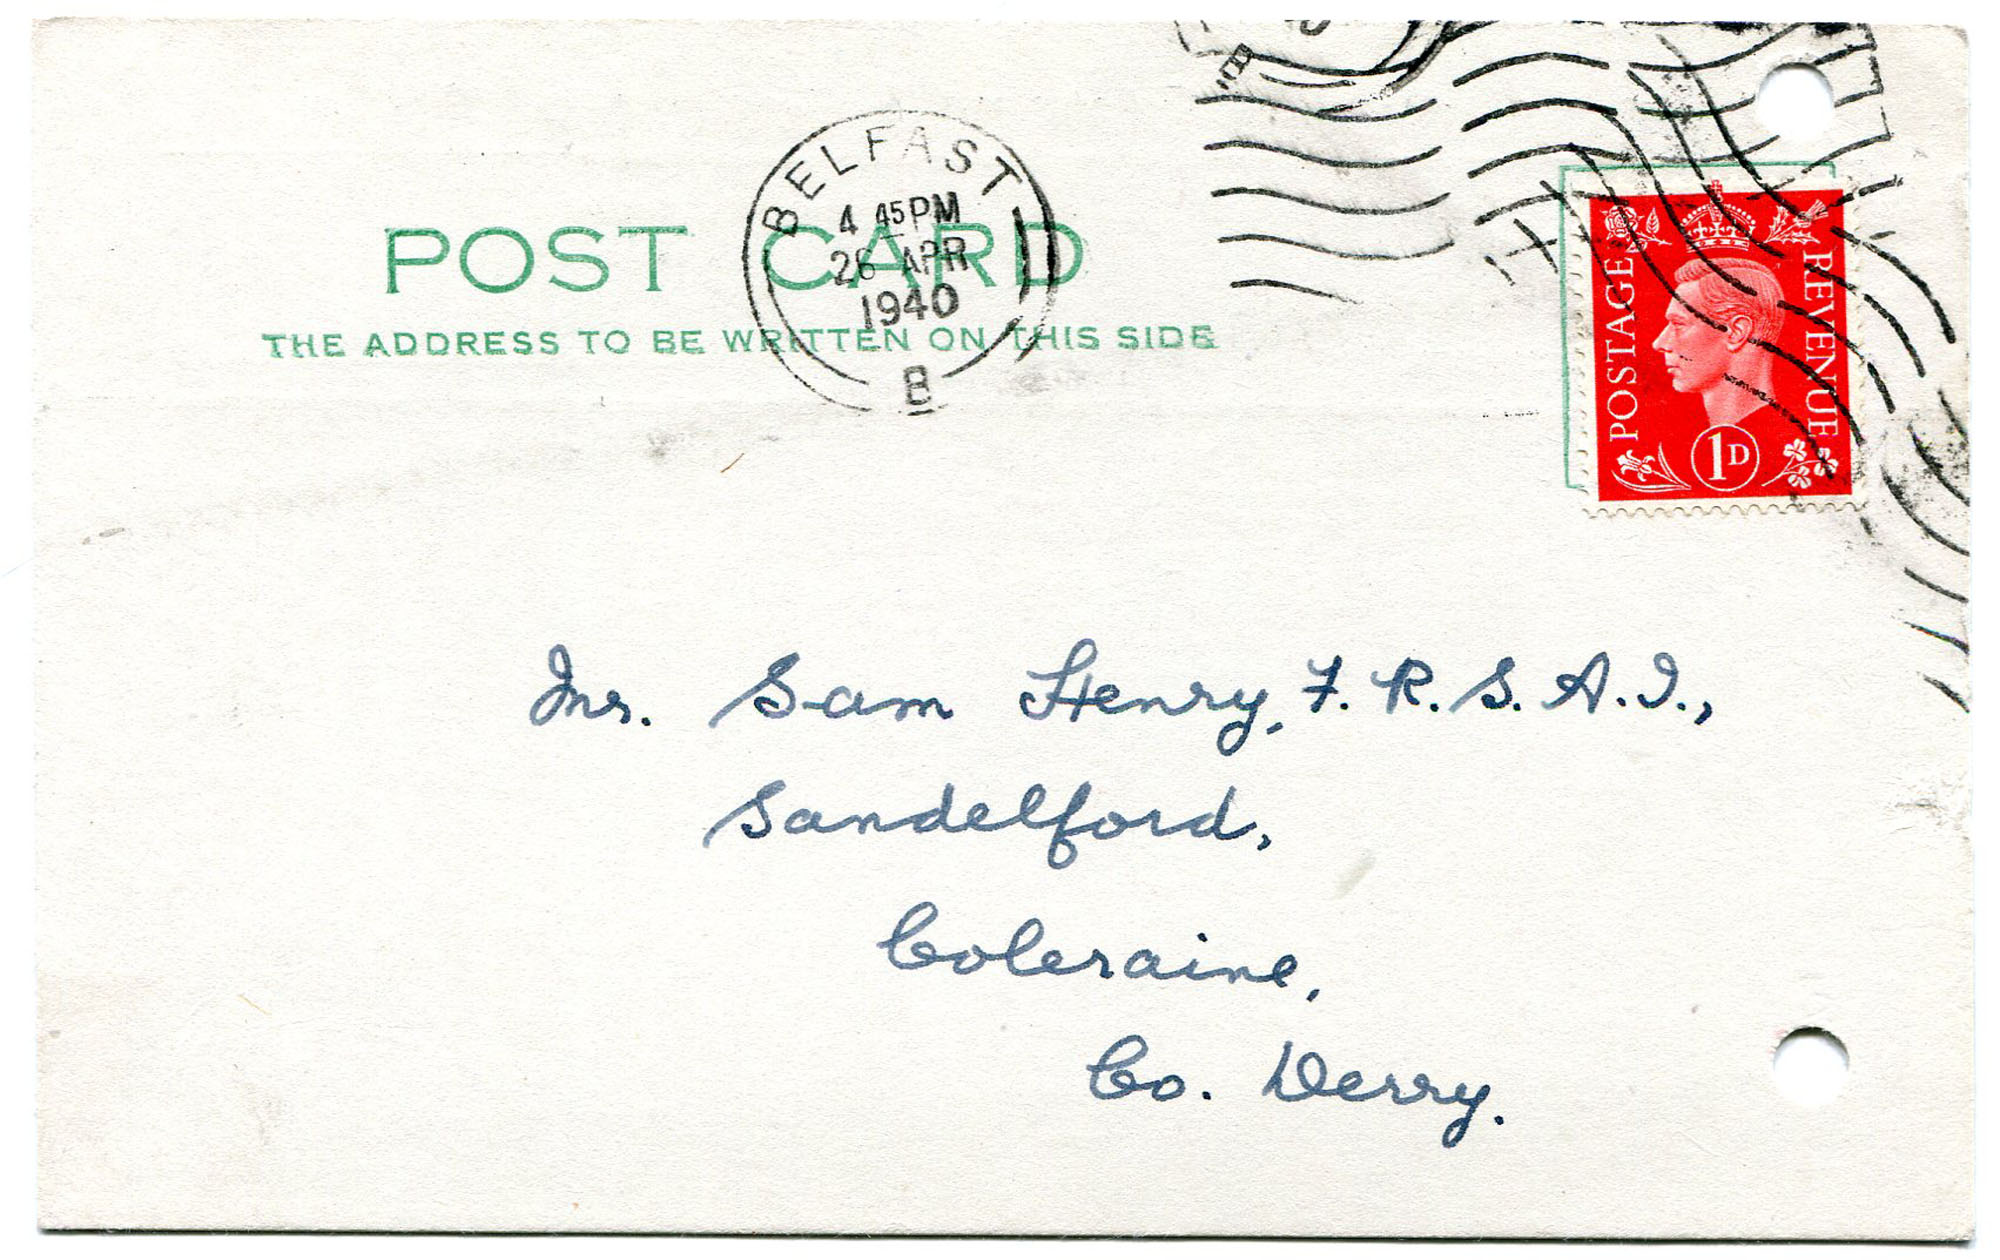 POST CARD
THE ADDRESS TO BE WRITTEN ON THIS SIDE
BELFAST
4 45PM
26 APR
1940
B
POSTAGE REVENUE
1D
Mr. Sam Henry, F.R.S.A.I.,
Sandelford,
Coleraine,
Co. Derry.